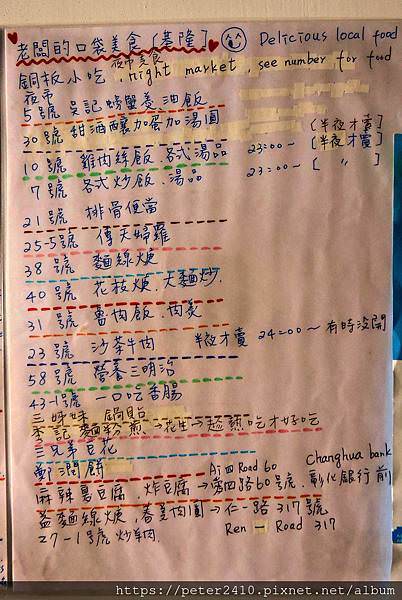 老闆的口袋美食(基隆) Delicious local food
夜市美食
銅板小吃, night market, see number for food
夜市
5號 吳記螃蟹羹油飯
30號 甜酒釀加蛋加湯圓 [半夜才賣]
10號 雞肉絲飯.各式湯品 23:00~ [半夜才賣]
7號 各式炒飯.湯品 23:00~ [ 〃 ]
21號 排骨便當
25-5號 傳天婦羅
38號 麵線焿
40號 花枝焿.大麵炒.
31號 魯肉飯.肉羹
23號 沙茶牛肉 半夜才賣 24:00~有時沒開
58號 營養三明治
43-1號 一口吃香腸
三姊妹 鍋貼
李記 麵粉煎→花生→趁熱吃才好吃
三兄弟豆花
鄭潤餅
Ai四Road 60 Changhua bank
麻辣臭豆腐.炸豆腐→愛四路60號.彰化銀行前
麵線焿,香菱肉圓→仁一路317號
27-1號 炒羊肉. Ren 一 Road 317
https://peter2410.pixnet.net/album